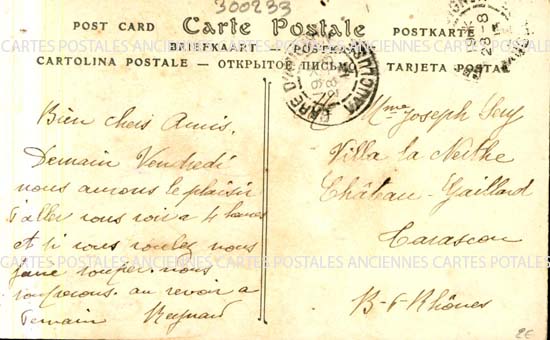 300233
POST CARD Carte Postale POSTKARTE
BRIEFKAART — POSTKARTE
CARTOLINA POSTALE — ОТКРЫТОЕ ПИСЬМО — TARJETA POSTAL
VAUCLUSE
28-8
Bien chers Amis.
Demain Vendredi
nous aurons le plaisir
d'aller vous voir a 4 heures
et si vous voulez nous
faire souper. nous
souperons. au revoir a
demain Reynard
Mme Joseph
Villa la Nerthe
Château-Gaillard
Tarascon
B-d-Rhônes
CARTES POSTALES ANCIENNES CARTES POSTALES ANCIENNES CARTES POSTALES
2€